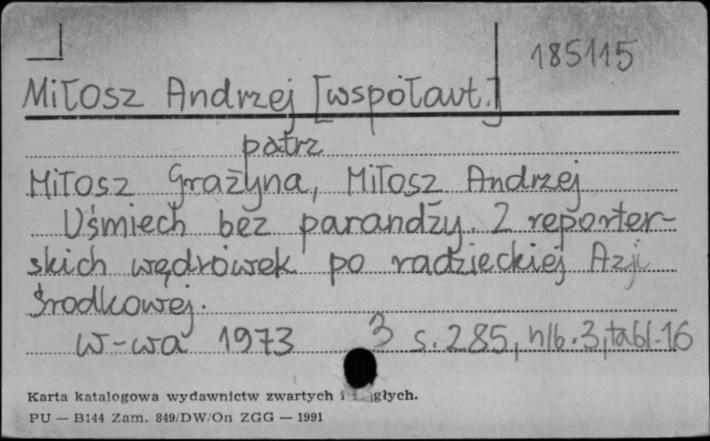 185115
Miłosz Andrzej [współaut.]
patrz
Miłosz Grażyna, Miłosz Andrzej
Uśmiech bez parandży. Z reporter-
skich wędrówek po radzieckiej Azji
Środkowej.
W-wa 1973 3 s. 285, nlb. 3, tabl. 16
Karta katalogowa wydawnictw zwartych i głych.
PU — B144 Zam. 849/DW/On ZGG — 1991